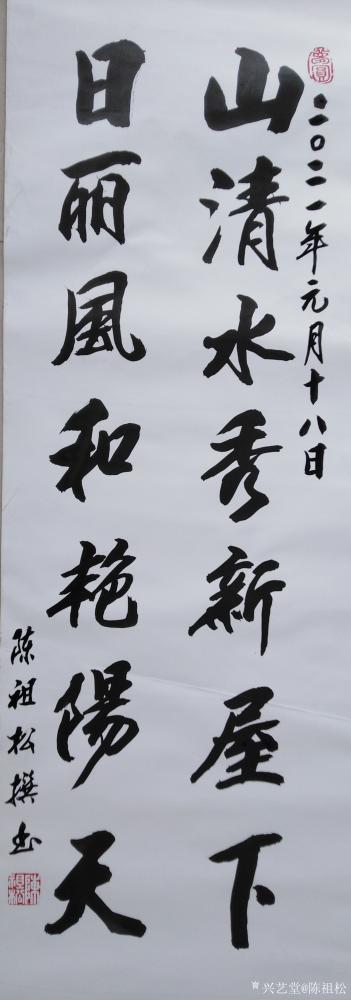 二〇二一年元月十八日
山清水秀新屋下
日丽風和艳陽天
陈祖松撰书
兴艺堂@陈祖松